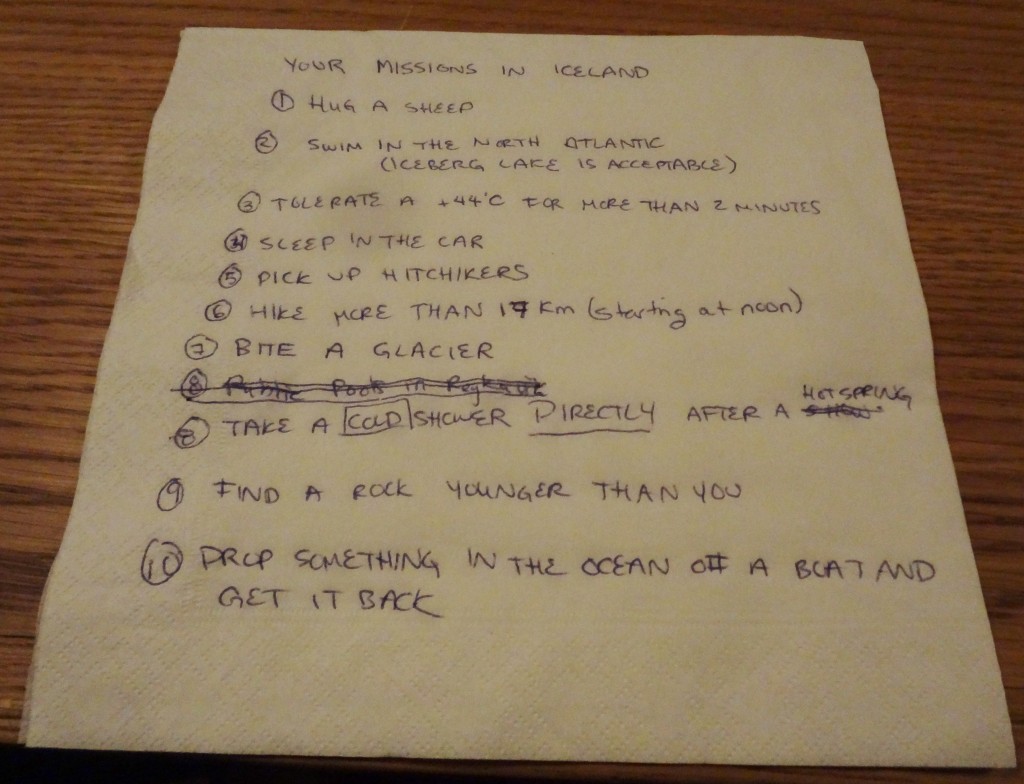 YOUR MISSIONS IN ICELAND
① HUG A SHEEP
② SWIM IN THE NORTH ATLANTIC
(ICEBERG LAKE IS ACCEPTABLE)
③ TOLERATE A +44°C FOR MORE THAN 2 MINUTES
④ SLEEP IN THE CAR
⑤ PICK UP HITCHIKERS
⑥ HIKE MORE THAN 17 Km (starting at noon)
⑦ BITE A GLACIER
⑧ Public Pools in Reykavik
HOTSPRING
⑧ TAKE A COLD SHOWER DIRECTLY AFTER A
⑨ FIND A ROCK YOUNGER THAN YOU
⑩ DROP SOMETHING IN THE OCEAN OFF A BOAT AND
GET IT BACK